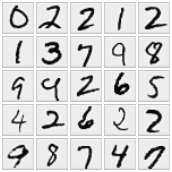 0 2 2 1 2
1 3 7 9 8
9 4 2 6 5
4 2 6 2 2
9 8 7 4 7